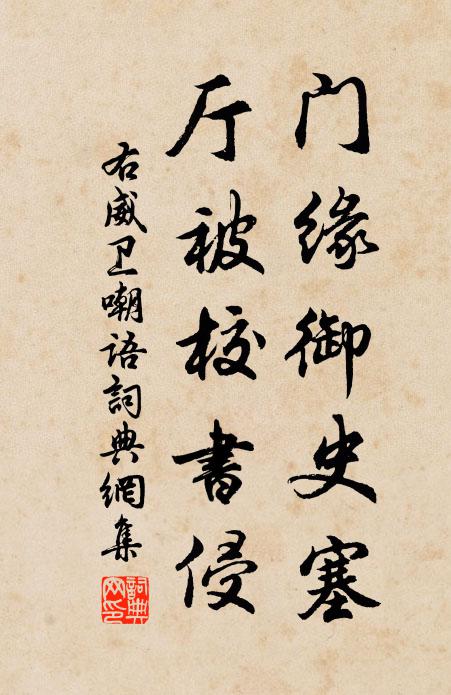 门缘御史塞
厅被校书侵
右威卫嘲语词典網集
詞典网印